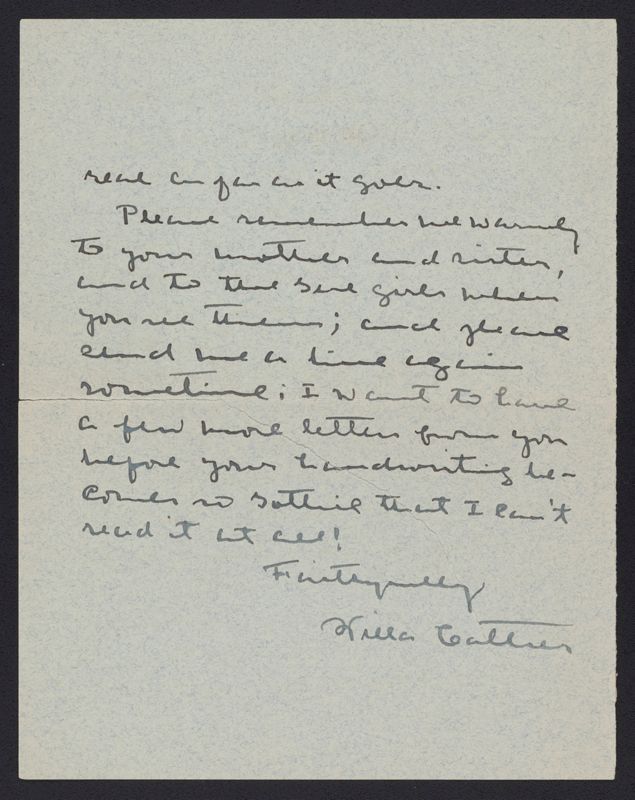 real as far as it goes.
Please remember me warmly
to your mother and sister,
and to the Seil girls when
you see them; and please
send me a line again
sometime; I want to have
a few more letters from you
before your handwriting be-
comes so Gothic that I can't
read it at all!
Faithfully
Willa Cather